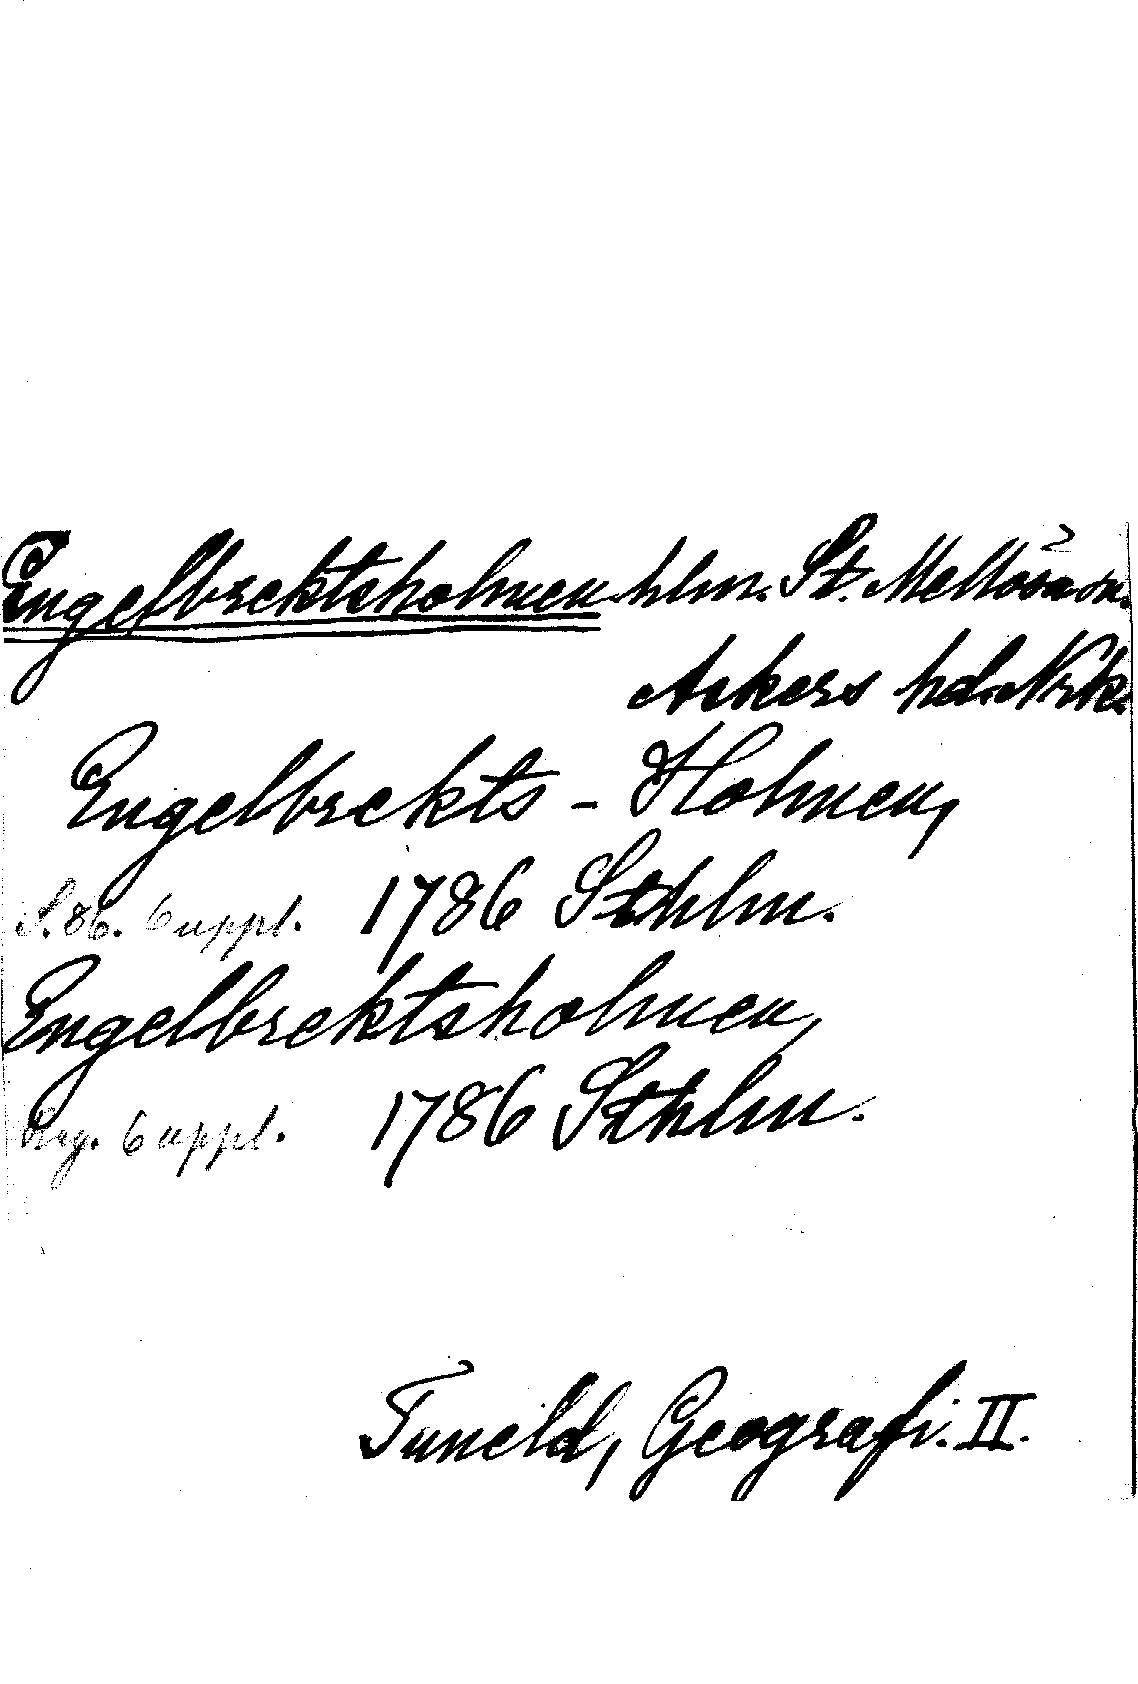 Engelbrektsholmen hlm. St. Mellösa sn.
Askers hd. Nrk.
Engelbrekts - Holmen,
S. 86. 6 uppl. 1786 Sthlm.
Engelbrektsholmen,
6 uppl. 1786 Sthlm.
Tuneld, Geografi. II.